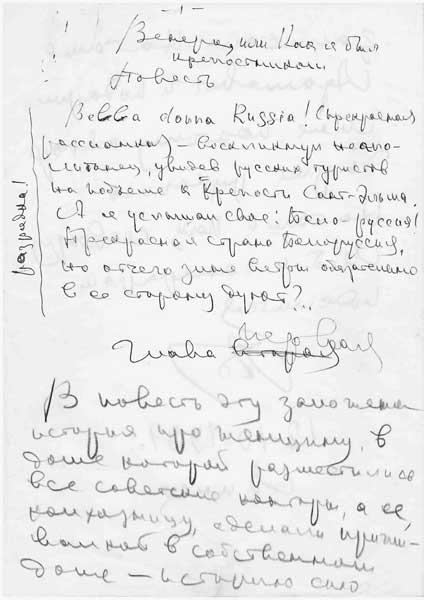 - 1 -
Венера, или Как я был
крепостником
Повесть
Bella donna Russia! (Прекрасная
россиянка) – воскликнул неапо-
литанец, увидев русских туристов
на подъеме к крепости Сант-Эльмо.
А я услышал свое: Бело-руссия!
Прекрасная страна Белоруссия,
но отчего злые ветры обязательно
в ее сторону дуют?..
разрядка!
Глава вторая первая
В повесть эту заложена
история про женщину, в
доме которой разместились
все советские конторы, а ее,
хозяйку, сделали прижи-
валкой в собственном
доме – историю